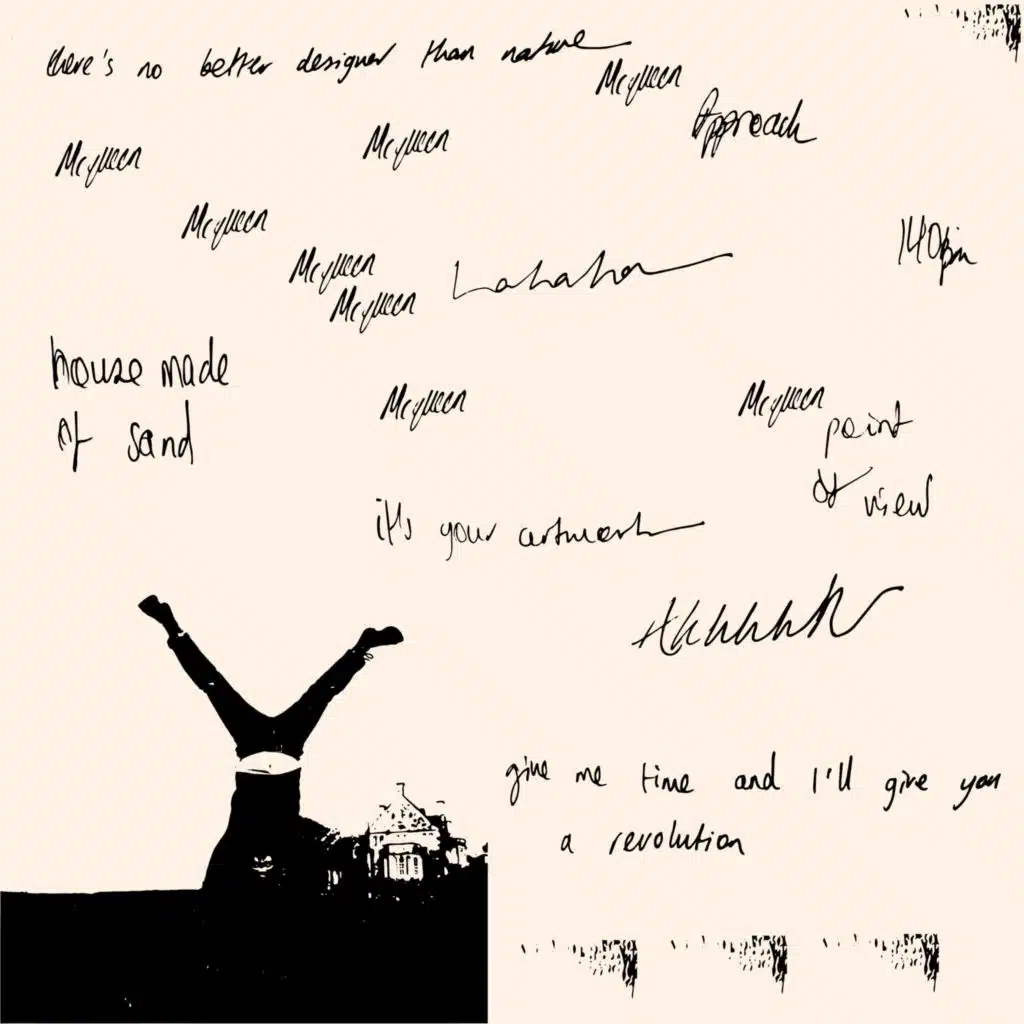 there's no better designer than nature
McQueen
Approach
McQueen
McQueen
McQueen
140bpm
McQueen
Lahahaha
McQueen
house made
of sand
McQueen
McQueen
point
of view
it's your artwork
Ahhhhh
give me time and I'll give you
a revolution